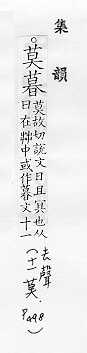 集韻
○莫暮
莫故切說文日且冥也从
日在茻中或作暮文十一
去聲
(十一莫.
P498)